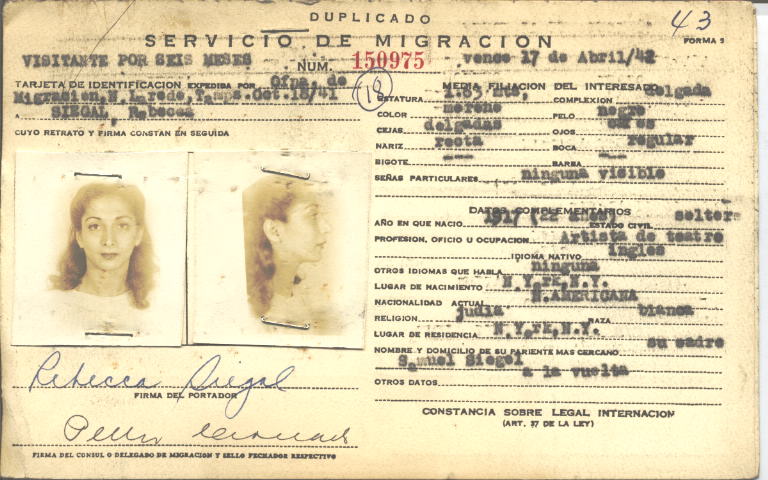 DUPLICADO
43
SERVICIO DE MIGRACION
FORMA 5
VISITANTE POR SEIS MESES
NUM. 150975
vence 17 de Abril/42
TARJETA DE IDENTIFICACION EXPEDIDA POR Ofna. de
Migrasion, N. Laredo, Tamps. Oct. 18/41
A SIEGAL, Rebecca
CUYO RETRATO Y FIRMA CONSTAN EN SEGUIDA
MEDIA FILIACION DEL INTERESADO
ESTATURA 1.63 mts, COMPLEXION delgada
COLOR moreno PELO negro
CEJAS delgadas OJOS
NARIZ recta BOCA regular
BIGOTE --- BARBA ---
SEÑAS PARTICULARES ninguna visible
DATOS COMPLEMENTARIOS
AÑO EN QUE NACIO 1917 ESTADO CIVIL
PROFESION, OFICIO U OCUPACION Artista de teatro
IDIOMA NATIVO ingles
OTROS IDIOMAS QUE HABLA ninguna
LUGAR DE NACIMIENTO N.Y.PK,N.Y.
NACIONALIDAD ACTUAL N.AMERICANA
RELIGION judia RAZA blanca
LUGAR DE RESIDENCIA N.Y.PK,N.Y.
NOMBRE Y DOMICILIO DE SU PARIENTE MAS CERCANO su padre
Samuel Siegel
a la vuelta
OTROS DATOS
Rebecca Siegal
FIRMA DEL PORTADOR
FIRMA DEL CONSUL O DELEGADO DE MIGRACION Y SELLO FECHADOR RESPECTIVO
CONSTANCIA SOBRE LEGAL INTERNACION
(ART. 37 DE LA LEY)